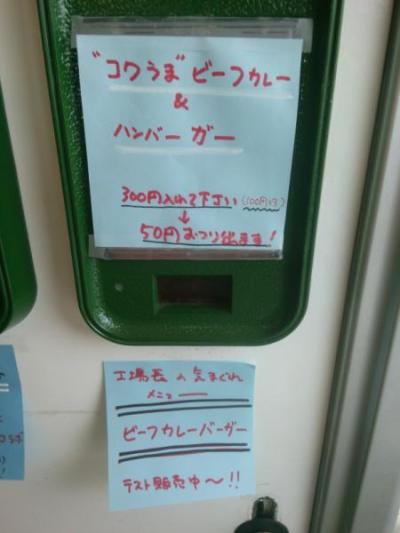 "コワうま"ビーフカレー
&
ハンバーガー
300円入れて下さい(100円×3)
↓
50円おつり出ます!
工場長の気まぐれ
メニュー
ビーフカレーバーガー
テスト販売中〜!!